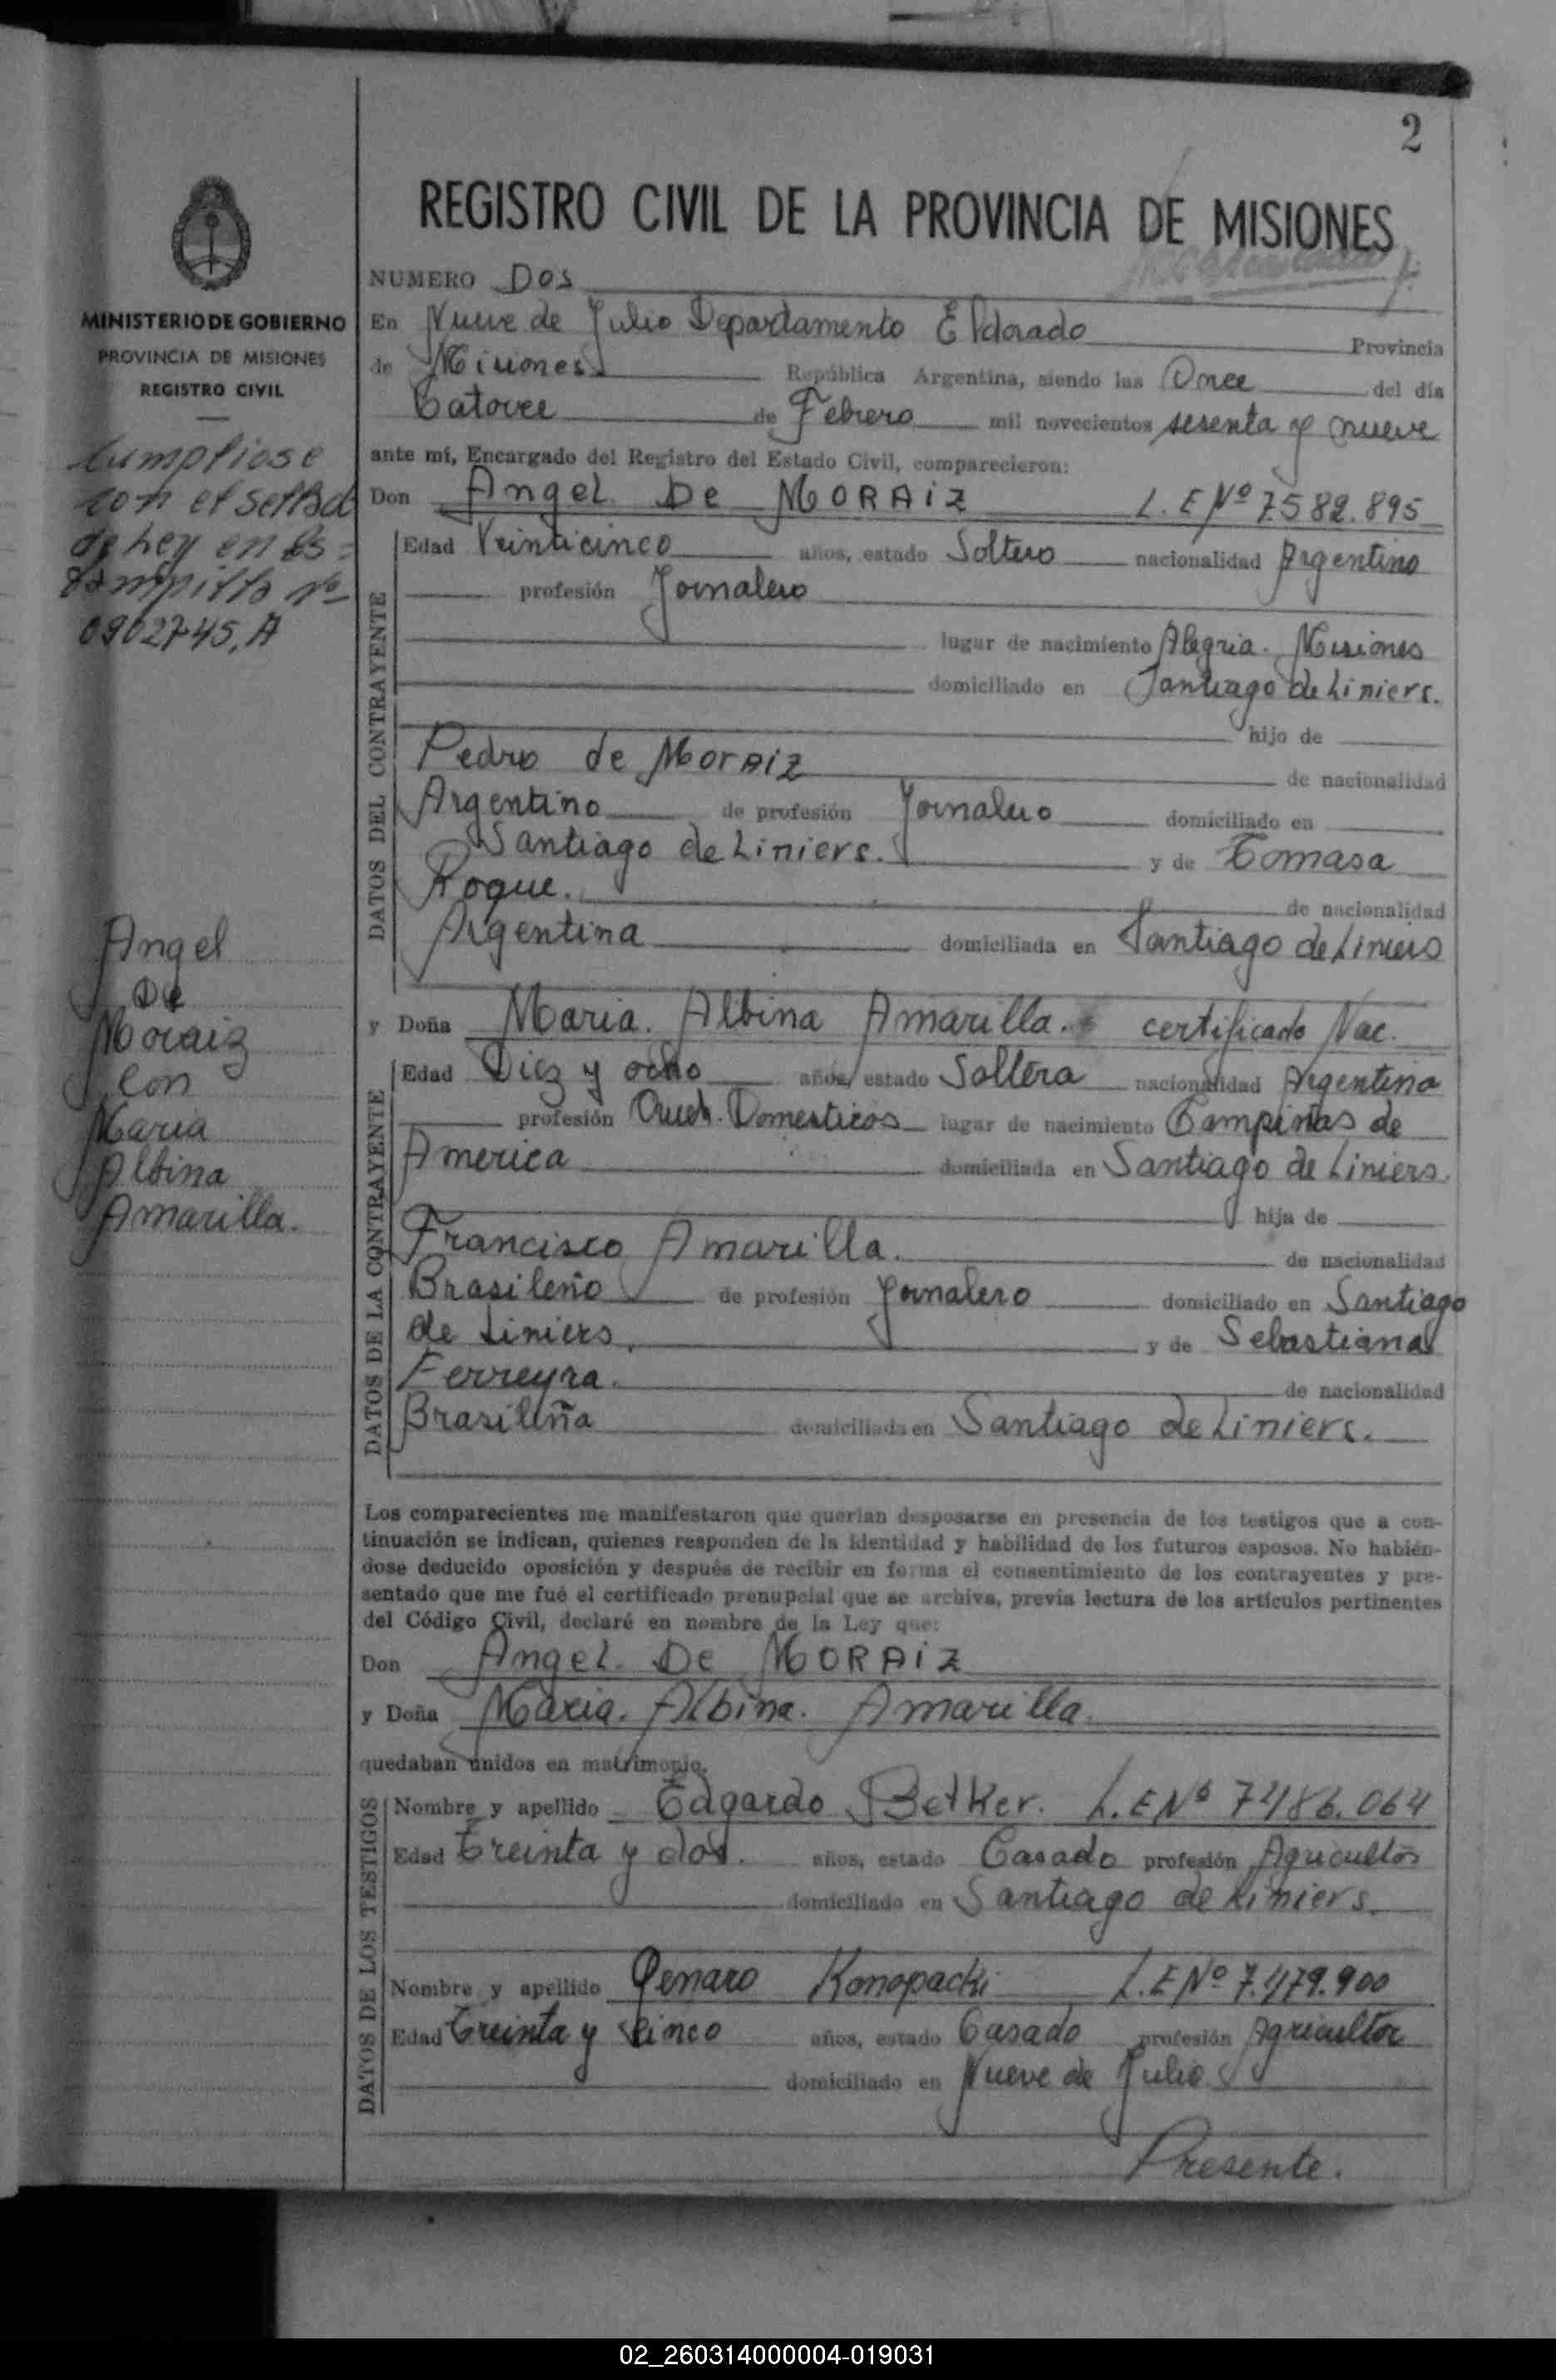 2
REGISTRO CIVIL DE LA PROVINCIA DE MISIONES
NUMERO Dos
MINISTERIO DE GOBIERNO
PROVINCIA DE MISIONES
REGISTRO CIVIL
Cumpliose
con el sellado
de ley en Es=
tampilla Nº
0902745,A
Angel
De
Moraiz
Con
Maria
Albina
Amarilla.
En Nueve de Julio Departamento Eldorado Provincia
de Misiones República Argentina, siendo las Once del día
Catorce de Febrero mil novecientos sesenta y nueve
ante mí, Encargado del Registro del Estado Civil, comparecieron:
Don Angel De MORAiZ L.E Nº 7.582.895
DATOS DEL CONTRAYENTE
Edad Veinticinco años, estado Soltero nacionalidad Argentino
profesión Jornalero
lugar de nacimiento Alegria. Misiones
domiciliado en Santiago de Liniers.
hijo de
Pedro de MorAiZ de nacionalidad
Argentino de profesión Jornalero domiciliado en
Santiago de Liniers. y de Tomasa
Roque. de nacionalidad
Argentina domiciliada en Santiago de Liniers
y Doña Maria. Albina Amarilla. certificado Nac.
DATOS DE LA CONTRAYENTE
Edad Diez y ocho años, estado Soltera nacionalidad Argentina
profesión Queh. Domesticos lugar de nacimiento Campiñas de
America domiciliada en Santiago de Liniers.
hija de
Francisco Amarilla. de nacionalidad
Brasileño de profesión Jornalero domiciliado en Santiago
de Liniers, y de Sebastiana
Ferreyra. de nacionalidad
Brasileña domiciliada en Santiago de Liniers.
Los comparecientes me manifestaron que querían desposarse en presencia de los testigos que a con-
tinuación se indican, quienes responden de la identidad y habilidad de los futuros esposos. No habién-
dose deducido oposición y después de recibir en forma el consentimiento de los contrayentes y pre-
sentado que me fué el certificado prenupcial que se archiva, previa lectura de los artículos pertinentes
del Código Civil, declaré en nombre de la Ley que:
Don Angel De MORAiZ
y Doña Maria. Albina. Amarilla.
quedaban unidos en matrimonio.
DATOS DE LOS TESTIGOS
Nombre y apellido Edgardo Betker. L.E Nº 7486.064
Edad Treinta y dos. años, estado Casado profesión Agricultor
domiciliado en Santiago de Liniers.
Nombre y apellido Genaro Konopacki L.E Nº 7.479.900
Edad Treinta y Cinco años, estado Casado profesión Agricultor
domiciliado en Nueve de Julio
Presente.
02_260314000004-019031